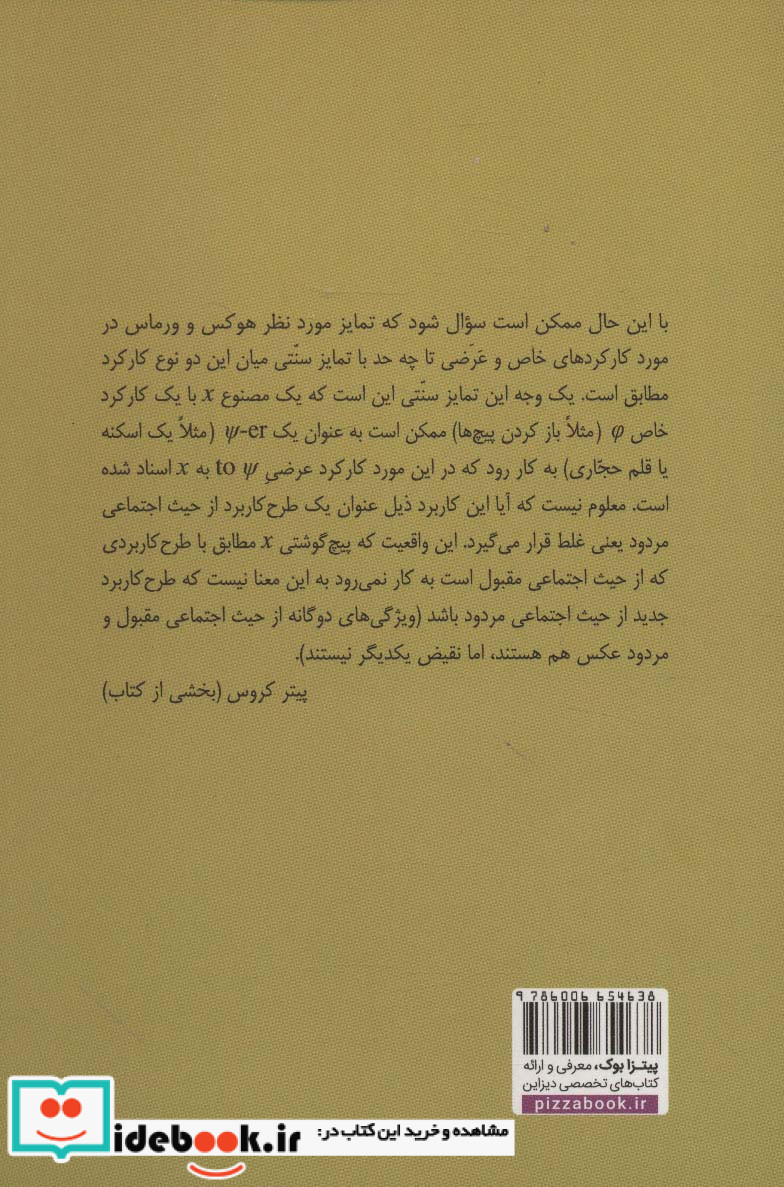 با این حال ممکن است سؤال شود که تمایز مورد نظر هوکس و ورماس در
مورد کارکردهای خاص و عَرَضی تا چه حد با تمایز سنّتی میان این دو نوع کارکرد
مطابق است. یک وجه این تمایز سنّتی این است که یک مصنوع x با یک کارکرد
خاص φ (مثلاً باز کردن پیچ‌ها) ممکن است به عنوان یک ψ-er (مثلاً یک اسکنه
یا قلم حجّاری) به کار رود که در این مورد کارکرد عرضیِ to ψ به x اسناد شده
است. معلوم نیست که آیا این کاربرد ذیل عنوان یک طرح‌کاربرد از حیث اجتماعی
مردود یعنی غلط قرار می‌گیرد. این واقعیت که پیچ‌گوشتی x مطابق با طرح‌کاربردی
که از حیث اجتماعی مقبول است به کار نمی‌رود به این معنا نیست که طرح‌کاربرد
جدید از حیث اجتماعی مردود باشد (ویژگی‌های دوگانه از حیث اجتماعی مقبول و
مردود عکس هم هستند، اما نقیض یکدیگر نیستند).
پیتر کروس (بخشی از کتاب)
9 786006 654638
پیتـزا بوک، معرفی و ارائه
کتاب‌های تخصصی دیزاین
pizzabook.ir
مشاهده و خرید این کتاب در:
idebook.ir